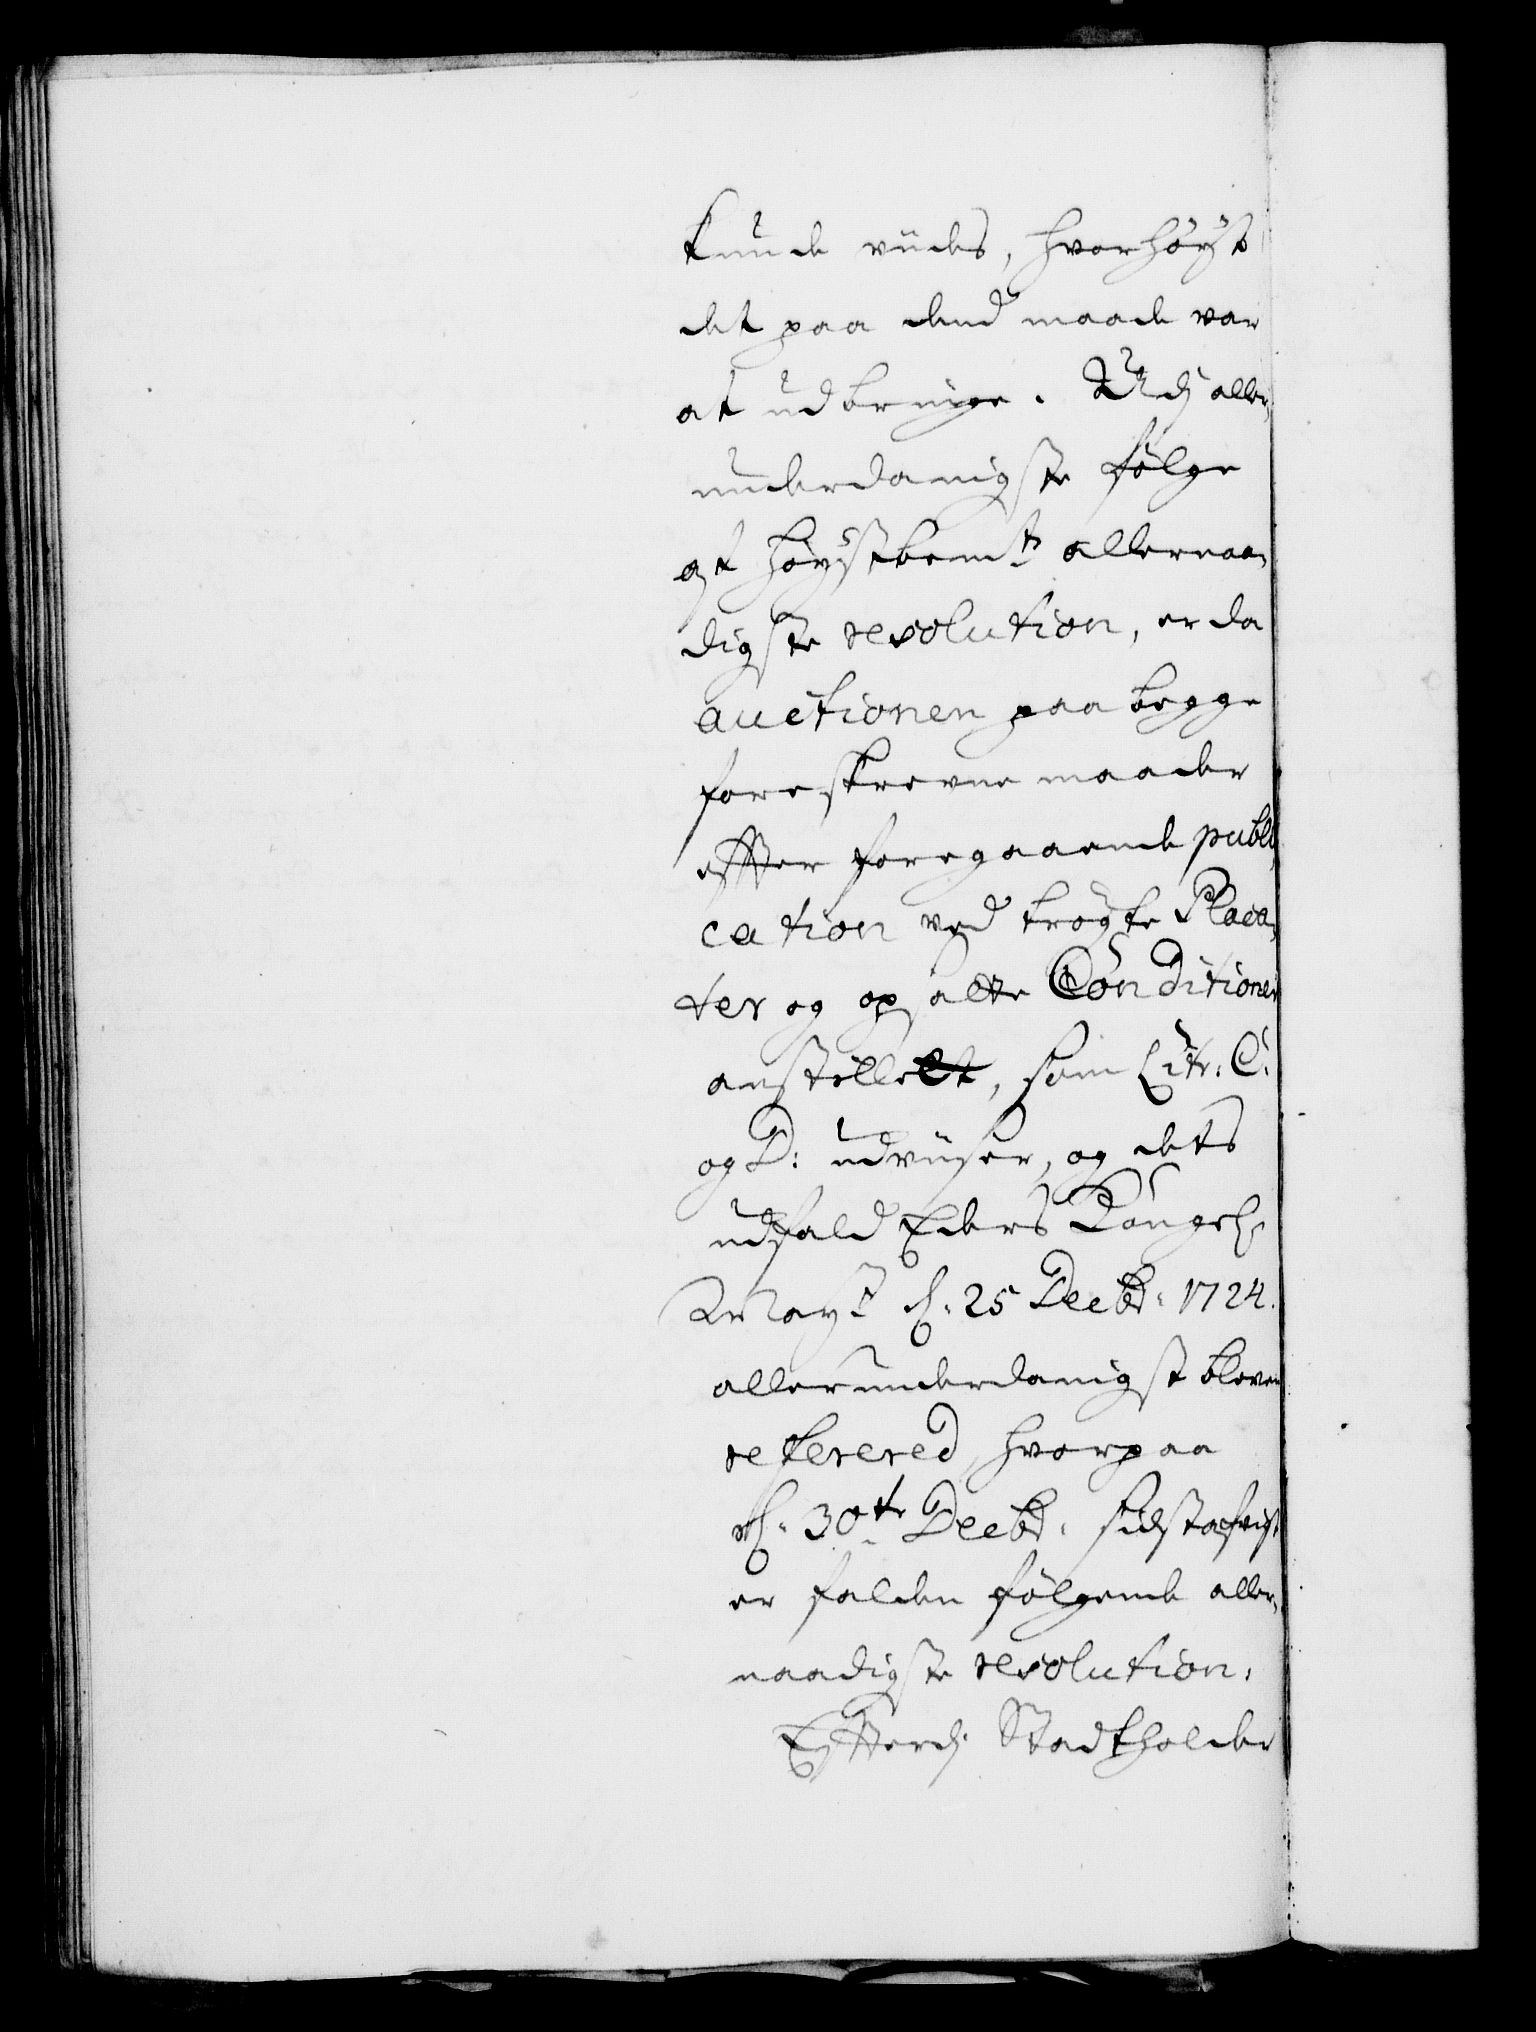 kunde viides, hvorhøyt
det paa dend maade var
at udbringe. Udj aller-
underdanigste følge
af høystbemte allernaa-
digste resolution, er da
auctionen paa begge
foreskrevne maader
effter foregaaende publi-
cation ved trögte Placa-
ter og opsatte Conditioner
anstillelt, som Litr: C:
og D: udviiser, og dets
udfald Eders Kongel:
Mayt d: 25 Decbr: 1724.
allerunderdanigst bleven
refereret, hvorpaa
d: 30te Decbr: sidstafvigt
er falden følgende aller-
naadigste resolution:
Effterdj Stadtholder